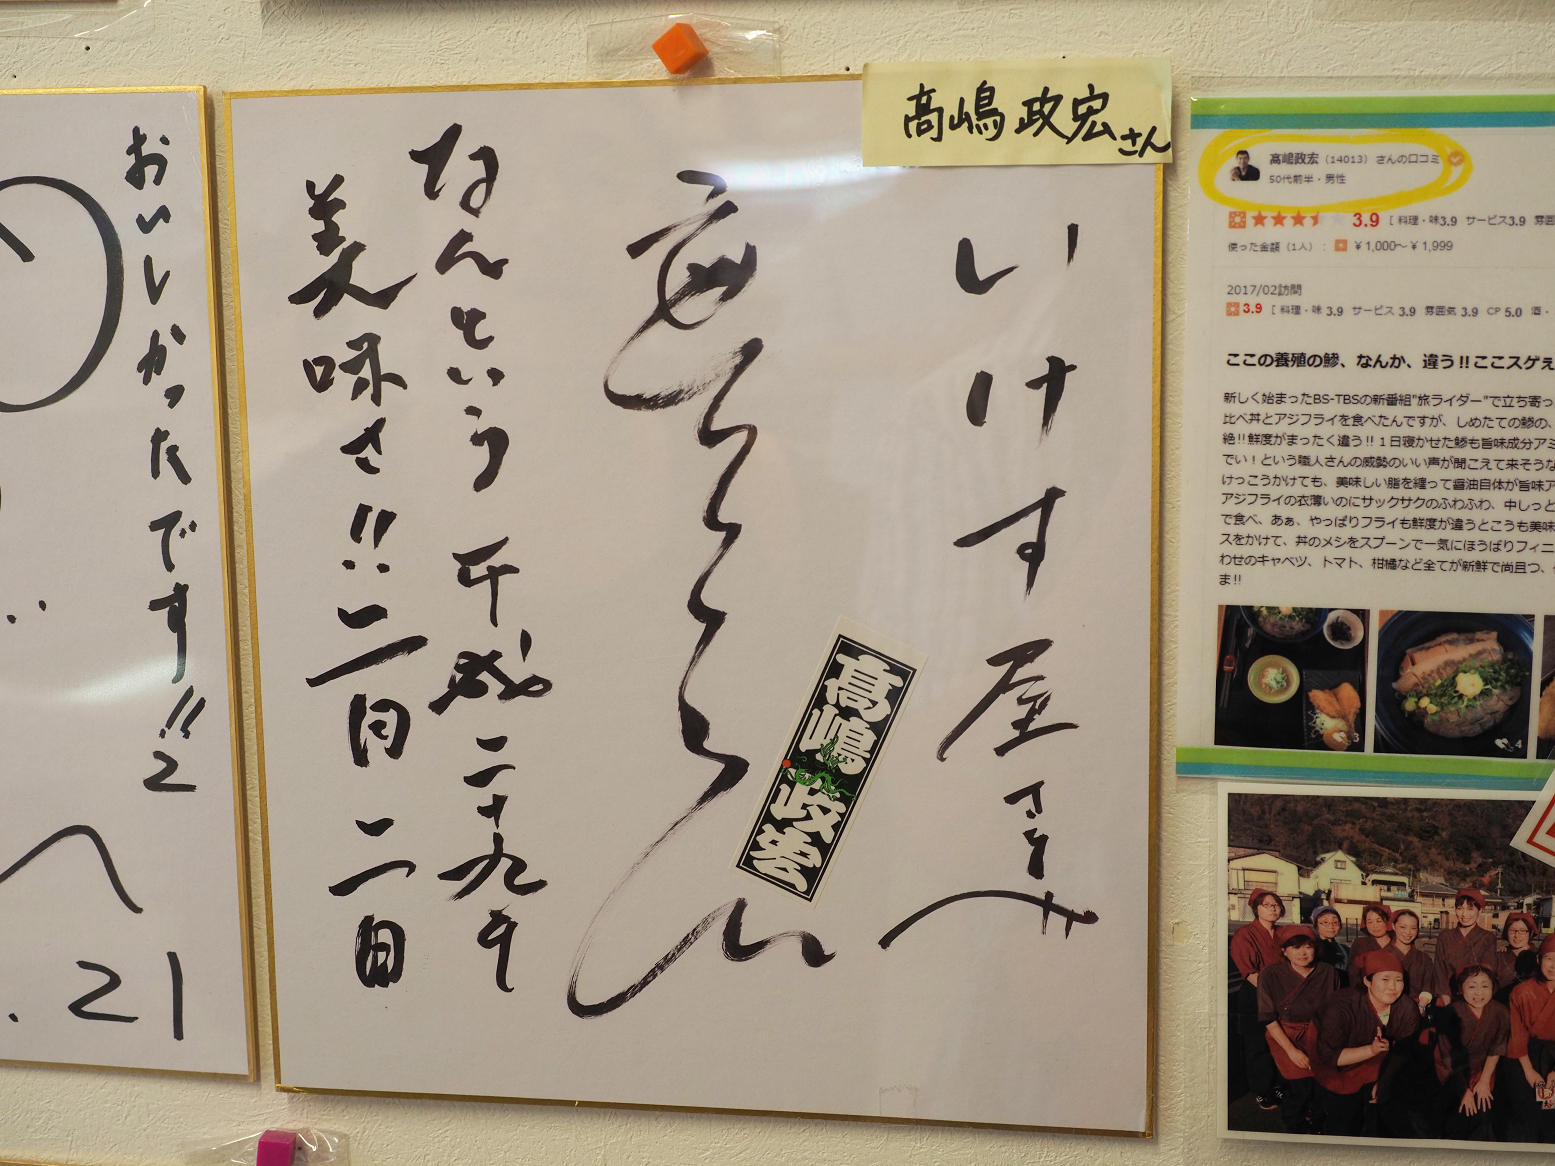 髙嶋政宏さん
いけす屋さんへ
髙嶋政宏
なんという
美味さ!!
平成二十九年
二月二日
おいしかったです!!
2
21
高嶋政宏（14013）さんの口コミ
50代前半・男性
3.9 [ 料理・味3.9 サービス3.9 雰囲
使った金額（1人）： ￥1,000～￥1,999
2017/02訪問
3.9 [ 料理・味 3.9 サービス 3.9 雰囲気 3.9 CP 5.0 酒・
ここの養殖の鯵、なんか、違う!!ここスゲぇ
新しく始まったBS-TBSの新番組"旅ライダー"で立ち寄っ
比べ丼とアジフライを食べたんですが、しめたての鯵の、
絶!!鮮度がまったく違う!!１日寝かせた鯵も旨味成分アミ
でい！という職人さんの威勢のいい声が聞こえて来そうな
けっこうかけても、美味しい脂を纏って醤油自体が旨味ア
アジフライの衣薄いのにサックサクのふわふわ、中しっと
で食べ、あぁ、やっぱりフライも鮮度が違うとこうも美味
スをかけて、丼のメシをスプーンで一気にほうばりフィニ
わせのキャベツ、トマト、柑橘など全てが新鮮で尚且つ、
ま!!
3
4